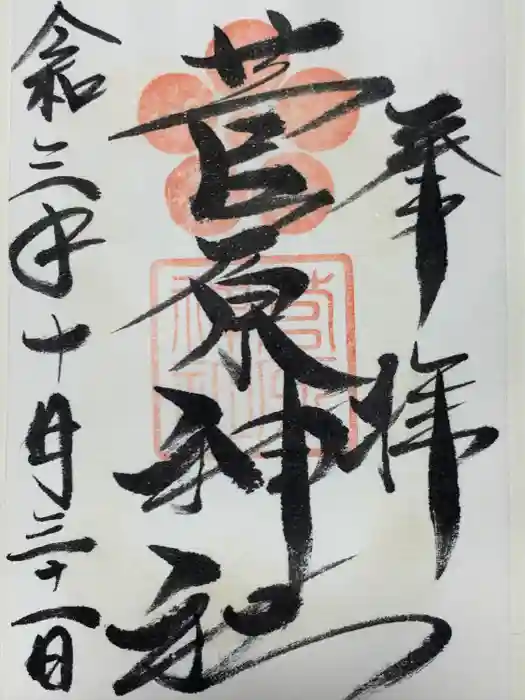 奉拝
菅原神社
令和三年十月三十一日